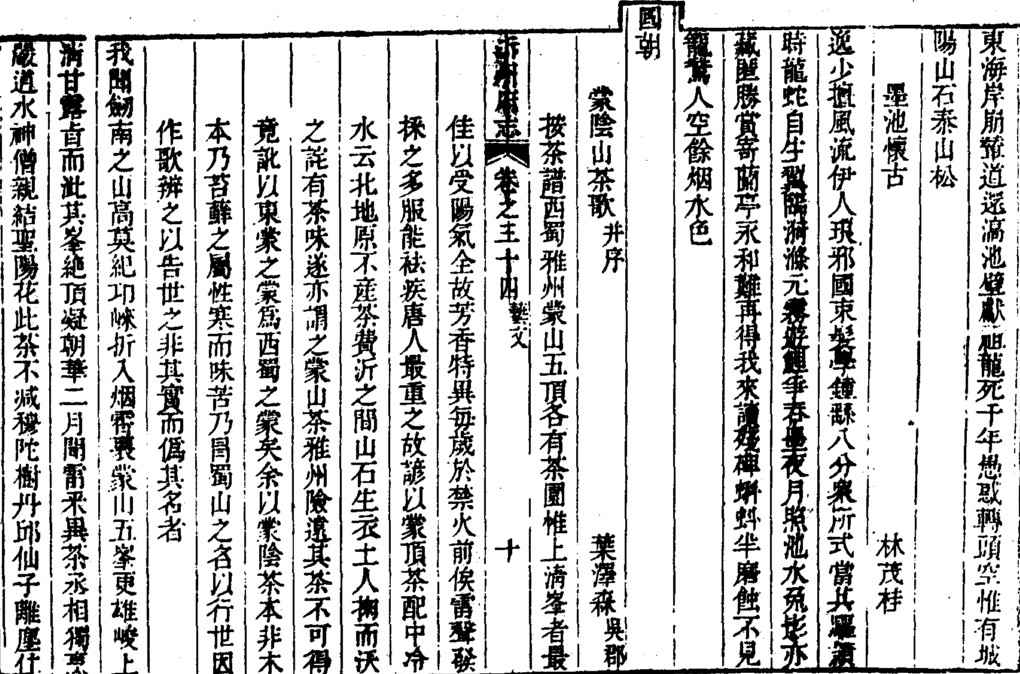 東海岸崩犖道還滈池璧獻祖龍死千年愚惑轉頭空惟有城
陽山石泰山松
墨池懷古 林茂桂
逸少擅風流伊人琅邪國束髮學鍾繇八分衆所式當其臨
時龍蛇自生翼臨漪滌元霧遊鯉爭吞墨夜月照池水兔影亦
藏匿勝賞寄蘭亭永和難再得我來讀殘碑蝌蚪半磨蝕不見
籠鵞人空餘烟水色
國朝
蒙陰山茶歌 并序 葉澤森 吳郡
按茶譜西蜀雅州蒙山五頂各有茶園惟上淸峯者最
沂州府志 卷之三十四 藝文 十
佳以受陽氣全故芳香特異每歲於禁火前俟雷聲發
採之多服能袪疾唐人最重之故諺以蒙頂茶配中冷
水云北地原不産茶費沂之間山石生衣土人掬而沃
之詫有茶味遂亦謂之蒙山茶雅州險遠其茶不可得
竟訛以東蒙之蒙爲西蜀之蒙矣余以蒙陰茶本非木
本乃苔蘚之屬性寒而味苦乃冒蜀山之名以行世因
作歌辨之以告世之非其實而僞其名者
我聞劒南之山高莫紀卭崍折入烟霄裏蒙山五峯更雄峻上
淸甘露皆而此其峯絶頂凝朝華二月聞雷釆異茶丞相獨
嚴道水神僧親結聖陽花此茶不減穆陀樹丹邱仙子離塵仕